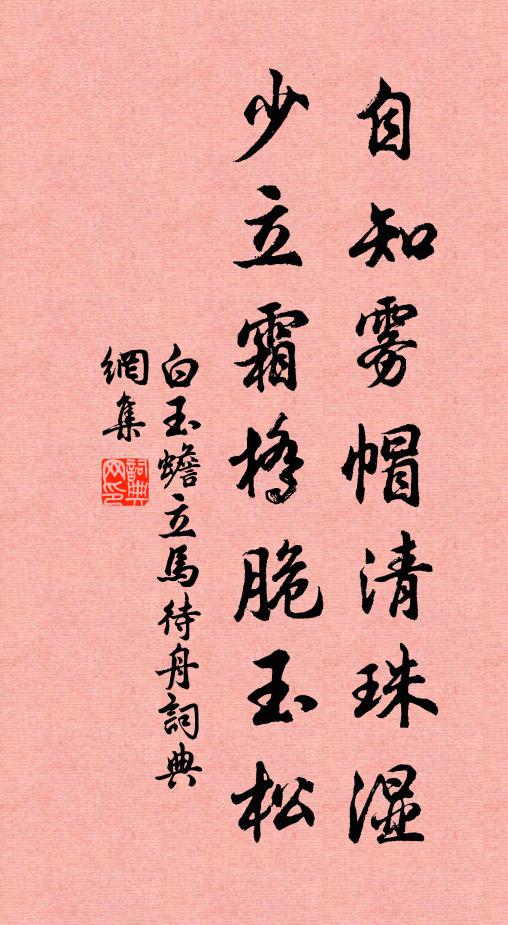 自知雾帽清珠湿
少立霜桥脆玉松
白玉蟾立馬待舟詞典
網集
詞典
网印